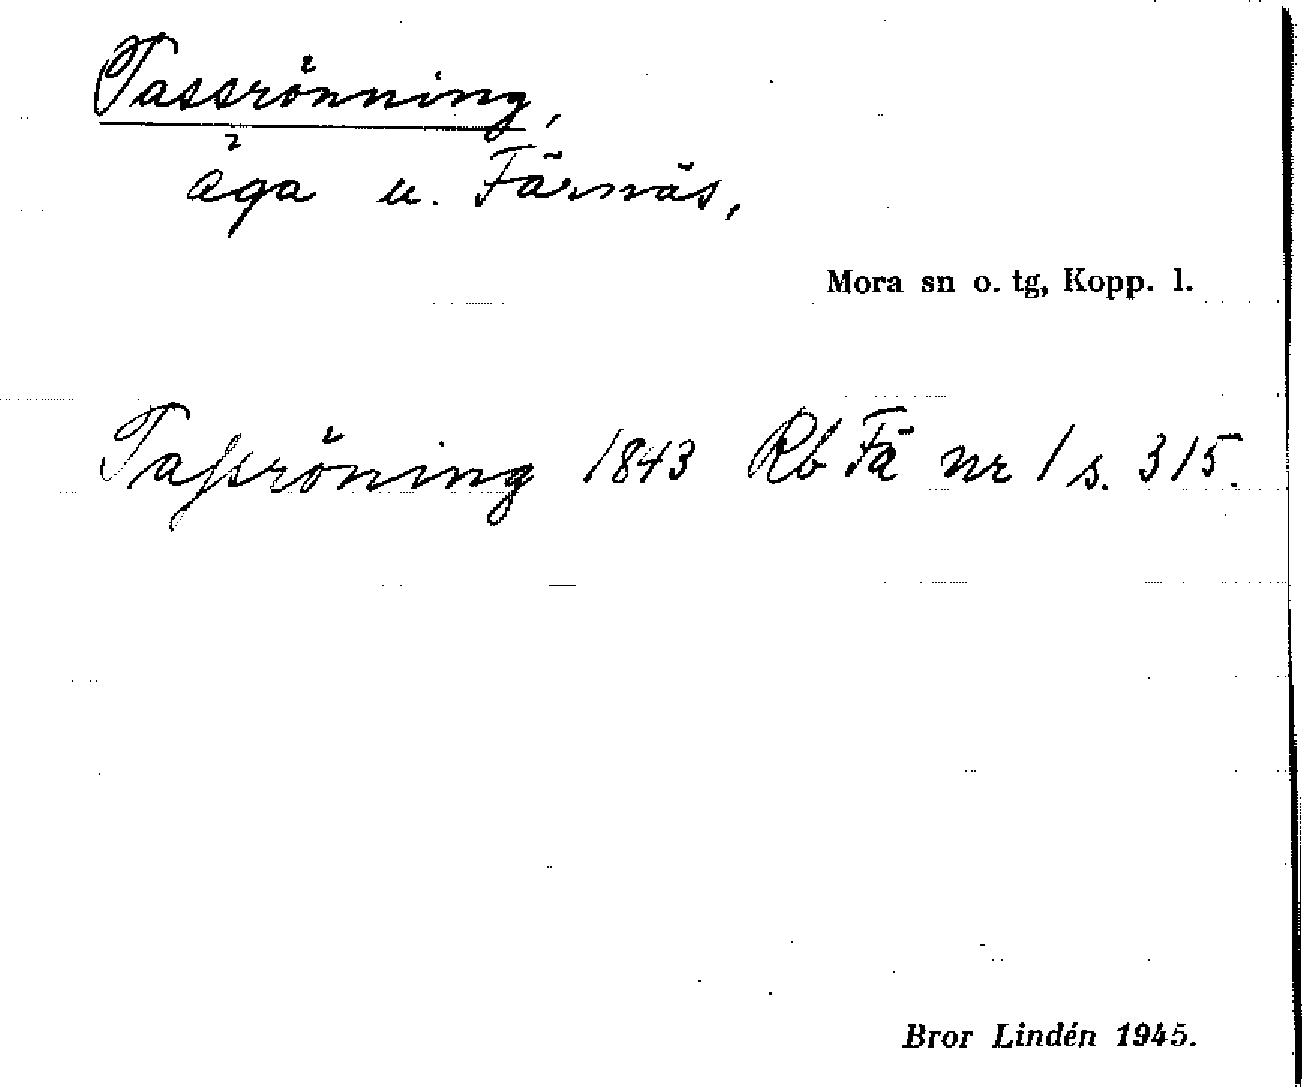 Tassrönning,
äga u. Färnäs,
Mora sn o. tg, Kopp. l.
Tassröning 1843 Rb Fä nr 1 s. 315.
Bror Lindén 1945.